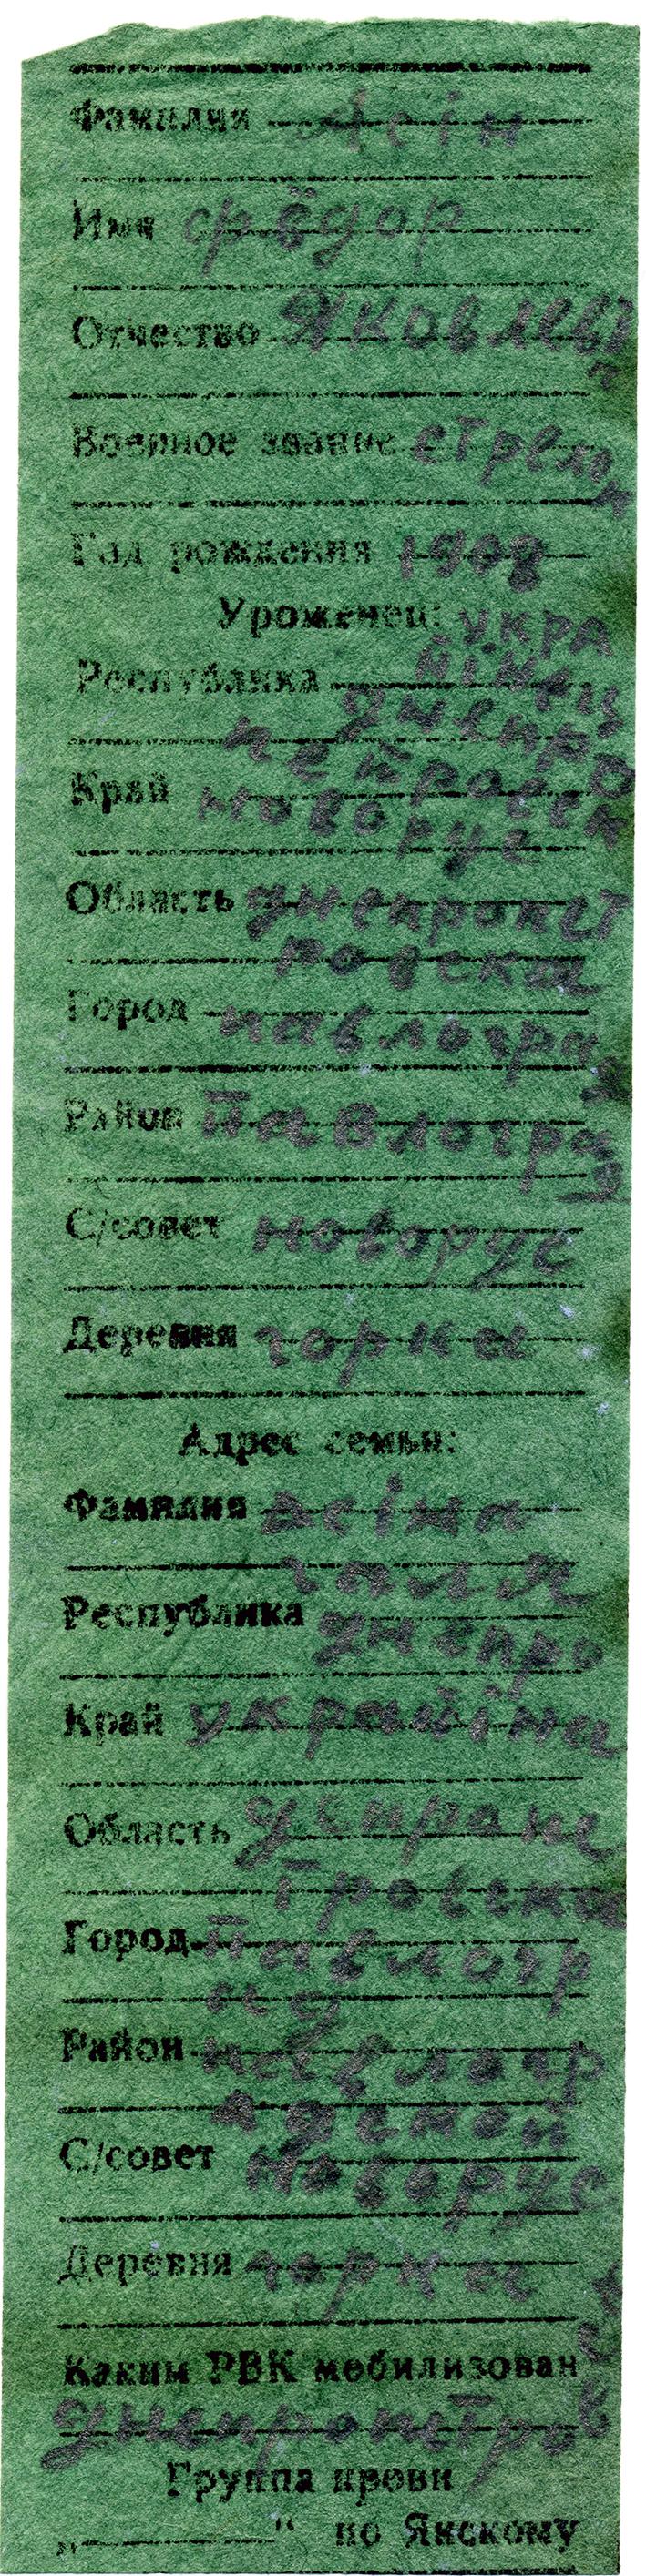 Фамилия Асін
Имя фёдор
Отчество Яковлеви
ч
Военное звание стрело
к
Год рождения 1908
Уроженец: укра
Республика йінец
днепро
Край петровск
Новорус
Область днепропет
ровски
Город павлогра
д
Район Павлогра
д
С/совет новорус
Деревня горки
Адрес семьи:
Фамилия Асіна
галя
Республика днепро
Край украйїна
Область
тровски
Город Павлогр
ад
Район павлогр
адскои
С/совет Новорус
Деревня горки
Каким РВК мобилизован
днепропетров
Группа крови
„ “ по Янскому